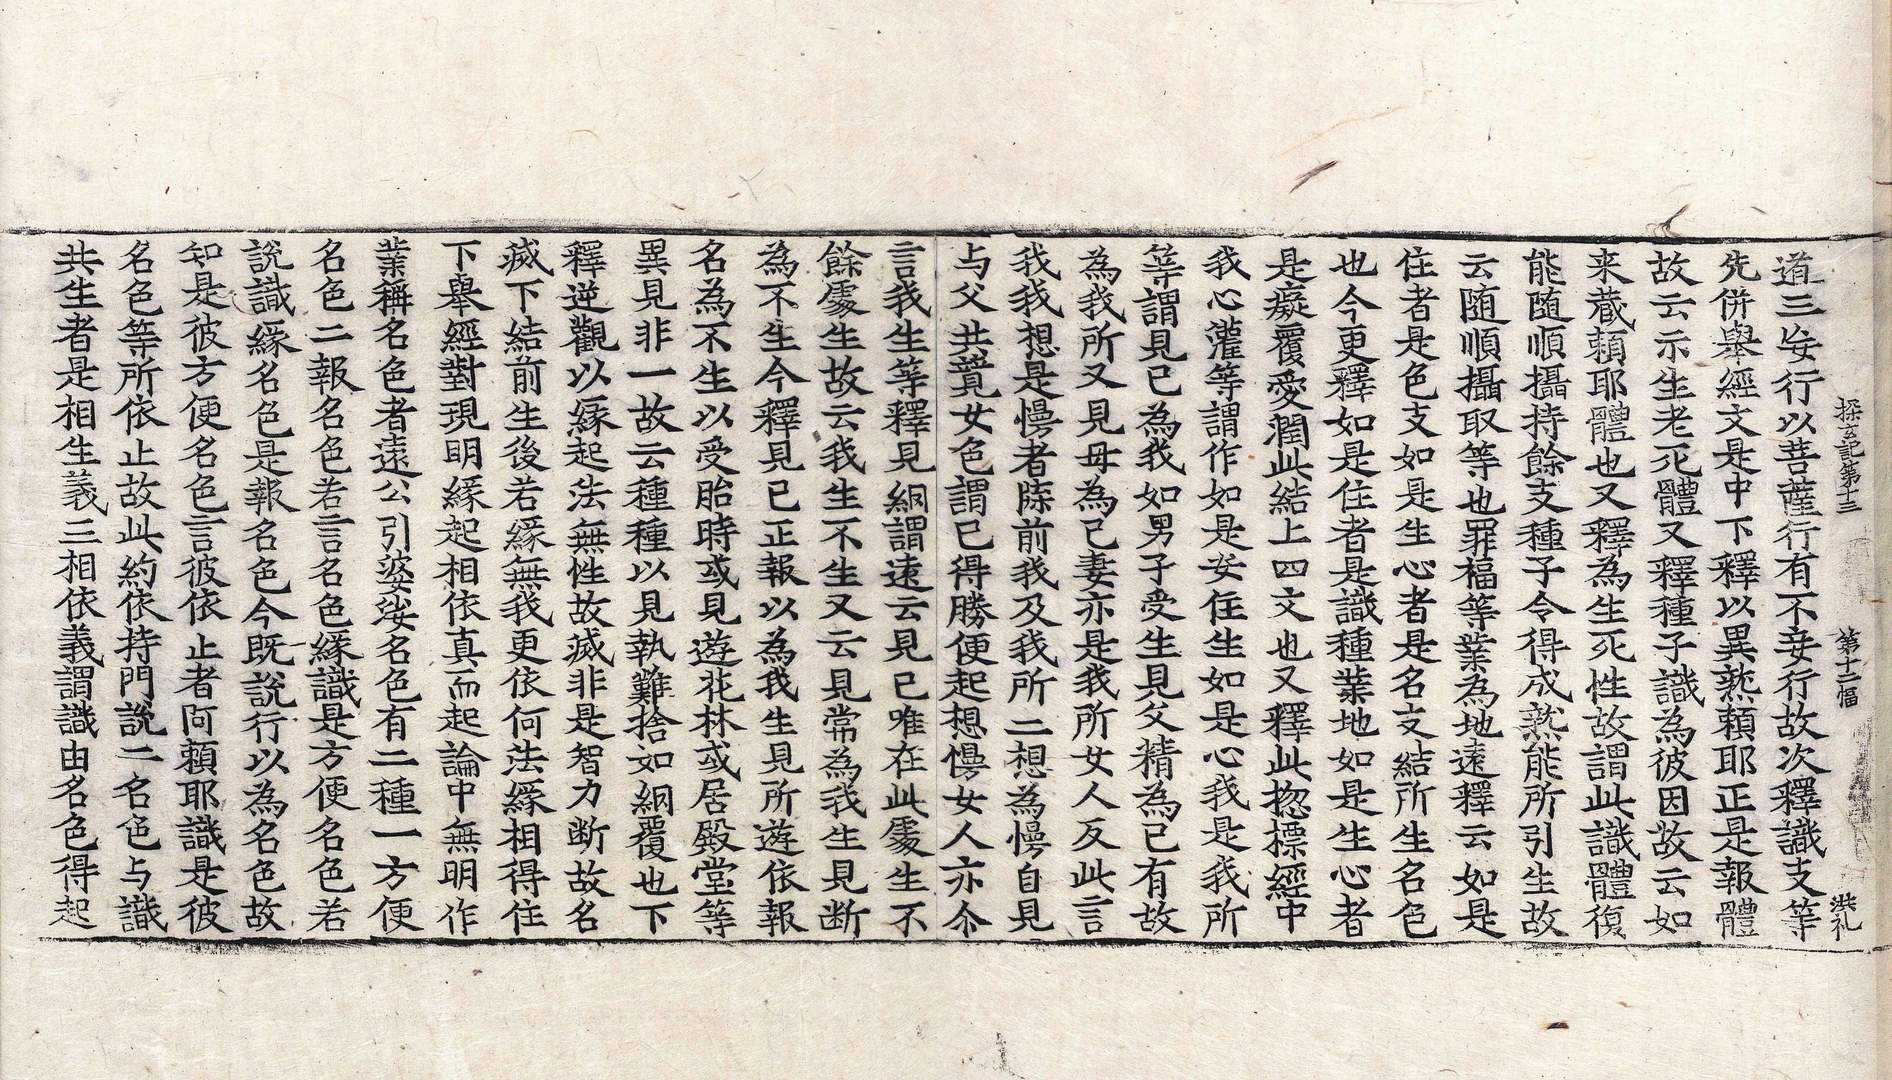 探玄記第十三 第十二幅 洪礼
道三妄行以菩薩行有不妄行故次釋識支等
先併舉經文是中下釋以異熟頼耶正是報體
故云示生老死體又釋種子識為彼因故云如
来蔵頼耶體也又釋為生死性故謂此識體復
能随順攝持餘支種子令得成熟能所引生故
云随順攝取等也罪福等業為地遠釋云如是
住者是色支如是生心者是名支結所生名色
也今更釋如是住者是識種業地如是生心者
是癡覆愛潤此結上四文也又釋此揔摽經中
我心灌等謂作如是安住生如是心我是我所
等謂見已為我如男子受生見父精為已有故
為我所又見母為己妻亦是我所女人反此言
我我想是慢者牒前我及我所二想為慢自見
与父共竸女色謂已得勝便起想慢女人亦尒
言我生等釋見網謂遠云見已唯在此處生不
餘處生故云我生不生又云見常為我生見断
為不生今釋見已正報以為我生見所遊依報
名為不生以受胎時或見遊花林或居殿堂等
異見非一故云種種以見執難捨如網覆也下
釋逆觀以緣起法無性故滅非是智力断故名
滅下結前生後若緣無我更依何法緣相得住
下舉經對現明緣起相依真而起論中無明作
業稱名色者遠公引婆娑名色有二種一方便
名色二報名色若言名色緣識是方便名色若
說識緣名色是報名色今既說行以為名色故
知是彼方便名色言彼依止者阿頼耶識是彼
名色等所依止故此約依持門說二名色与識
共生者是相生義三相依義謂識由名色得起